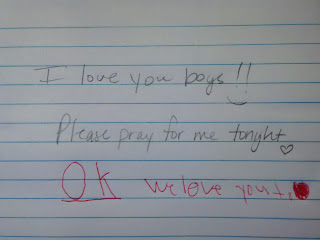 I love you boys!!
Please pray for me tonight
OK we love you